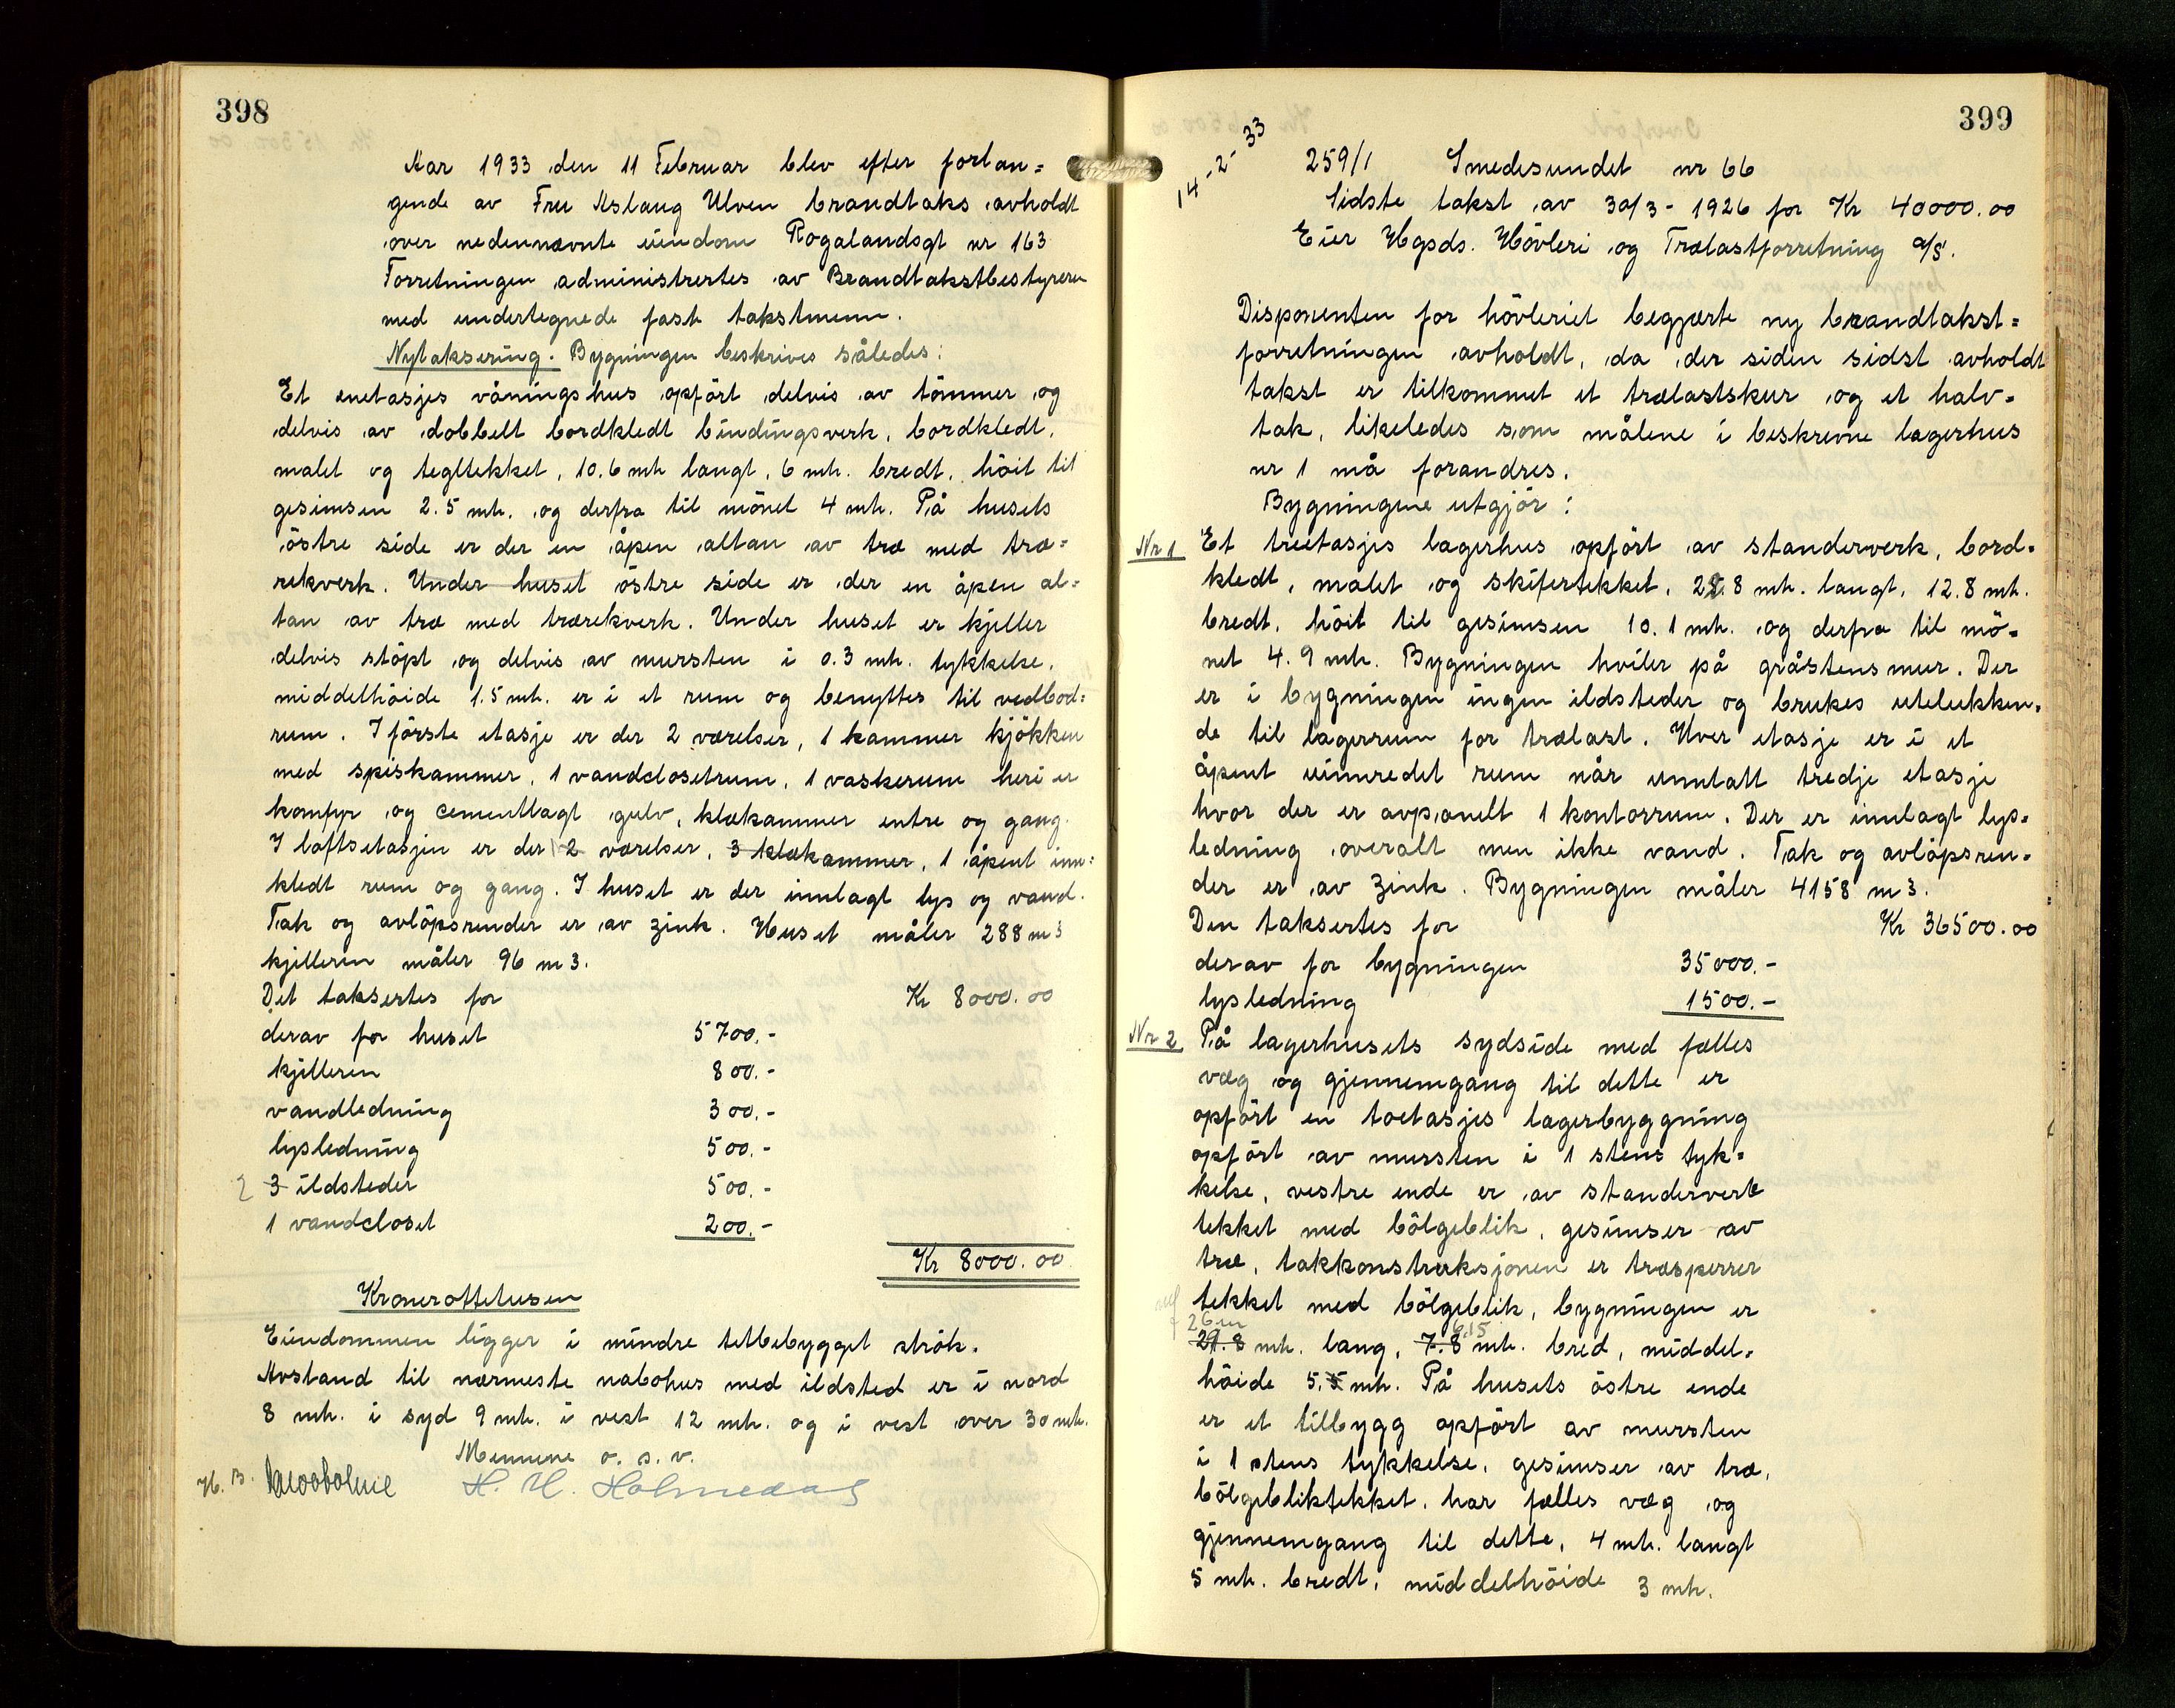 398
Aar 1933 den 11 Februar blev efter forlan=
gende av Fru Aslaug Ulven brandtaks avholdt
over nedennævnte eiendom Rogalandsgt nr 163
Forretningen administrertes av Brandtakstbestyreren
med undertegnede faste takstmenn.
Nytaksering. Bygningen beskrives således:
Et enetasjes våningshus opført delvis av tömmer og
delvis av dobbelt bordkledt bindingsverk, bordkledt,
malet og tegltekket, 10.6 mtr langt, 6 mtr. bredt, höit til
gesimsen 2.5 mtr. og derfra til mönet 4 mtr. På husets
östre side er der en åpen altan av træ med træ=
rekverk. Under huset östre side er der en åpen al=
tan av træ med trærekverk. Under huset er kjeller
delvis stöpt og delvis av mursten i 0.3 mtr. tykkelse,
middelhöide 1.5 mtr. er i et rum og benyttes til vedbod=
rum. I förste etasje er der 2 værelser, 1 kammer kjökken
med spiskammer, 1 vandclosetrum, 1 vaskerum heri er
komfyr og cementlagt gulv, klækammer entre og gang.
I loftsetasjen er der 2 værelser, 3 klækammer, 1 åpent inn=
kledt rum og gang. I huset er der innlagt lys og vand.
Tak og avlöpsrender er av zink. Huset måler 288 m3
kjelleren måler 96 m3.
Det taksertes for Kr 8000.00
derav for huset 5700.-
kjelleren 800.-
vandledning 300.-
lysledning 500.-
2 3 ildsteder 500.-
1 vandcloset 200.-
Kr 8000.00
Kroner ottetusen
Eiendommen ligger i mindre tetbebygget strök.
Avstand til nærmeste nabohus med ildsted er i nord
8 mtr. i syd 9 mtr. i vest 12 mtr. og i vest over 30 mtr.
Mennene o. s. v.
H. B. H. H. Holmedal
399
14-2-33
259/1 Smedesundet nr 66
Sidste takst av 30/3-1926 for Kr 40000.00
Eier Hgsds. Hövleri og Trælastforretning a/s.
Disponenten for hövleriet begjærte ny brandtakst=
forretningen avholdt, da der siden sidst avholdt
takst er tilkommet et trælastskur og et halv=
tak, likeledes som målene i beskrevne lagerhus
nr 1 må forandres.
Bygningene utgjör:
Nr 1 Et treetasjes lagerhus opfört av standerverk, bord=
kledt, malet og skifertekket, 25.8 mtr. langt, 12.8 mtr.
bredt, höit til gesimsen 10.1 mtr. og derfra til mö=
net 4.9 mtr. Bygningen hviler på gråstensmur. Der
er i bygningen ingen ildsteder og brukes utelukken=
de til lagerrum for trælast. Hver etasje er i et
åpent uinnredet rum når unntatt tredje etasje
hvor der er avpanelt 1 kontorrum. Der er innlagt lys=
ledning overalt men ikke vand. Tak og avlöpsren=
der er av zink. Bygningen måler 4158 m3.
Den taksertes for Kr 36500.00
derav for bygningen 35000.-
lysledning 1500.-
Nr 2 På lagerhusets sydside med fælles
væg og gjennemgang til dette er
opfört en toetasjes lagerbyggning
opfört av mursten i 1 stens tyk=
kelse, vestre ende er av standerverk
tekket med bölgeblik, gesimser av
træ, takkonstruksjonen er træsperrer
tekket med bölgeblik, bygningen er
26 m 6,15
29.8 mtr. lang, 7.8 mtr. bred, middel=
höide 5.5 mtr. På husets östre ende
er et tilbygg opfört av mursten
i 1 stens tykkelse, gesimser av træ,
bölgebliktekket, har fælles væg og
gjennemgang til dette, 4 mtr. langt
5 mtr. bredt, middelhöide 3 mtr.